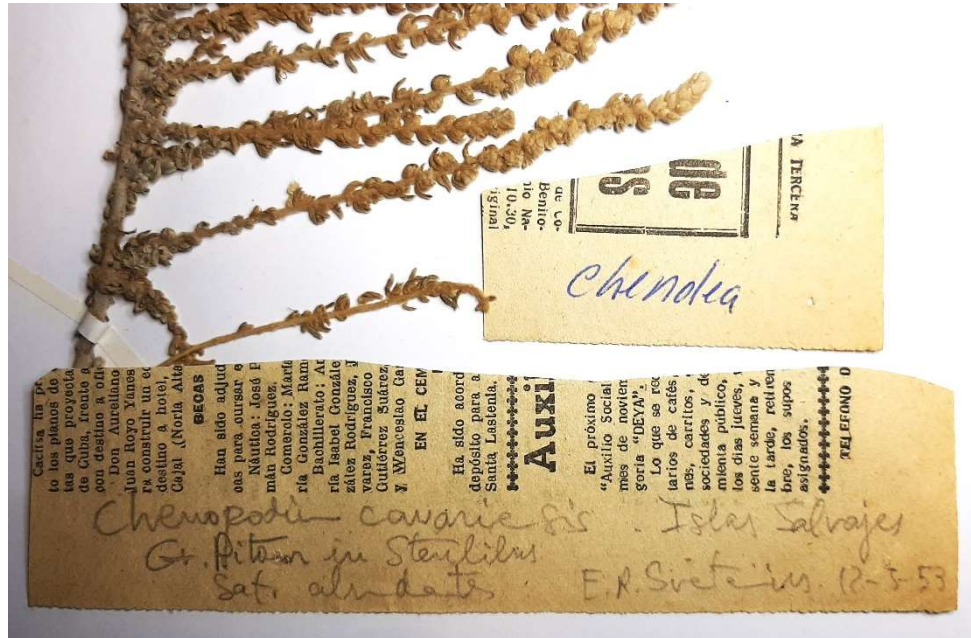 YA TERCERA
de
as
de Co-
Benito-
io Na-
10.30,
riginal
Chendea
to los planos de
tas que proyecta
de Cuba, frente a
con destino a
Don Aureliano
Juan Royo Yanes
ra construir un
destino a hotel,
Cajal (Noria Alta
BECAS
Han sido adjud
cas para cursar e
Náutica: José P
mán Rodríguez.
Comercio: María
ría González Ram
Bachillerato: Ar
ría Isabel Gonzále
zález Rodríguez, J
varez, Francisco
Gutiérrez Suárez,
y Wenceslao Gar
EN EL CEM
Ha sido acord
depósito para a
Santa Lastenia,
Auxil
El próximo
"Auxilio Social
mes de noviem
goría "DEYA".
Lo que se rec
tarios de cafés,
nes, carritos,
sociedades y de
mienta público,
los días jueves,
sente semana y
la tarde, retiren
bre, los supos
asignados.
TELEFONO D
Chenopodiu canariesis. Islas Salvajes
Gr. Piton in Sterilibus
Sat. abundates E.R. Sventenius. 12-5-53